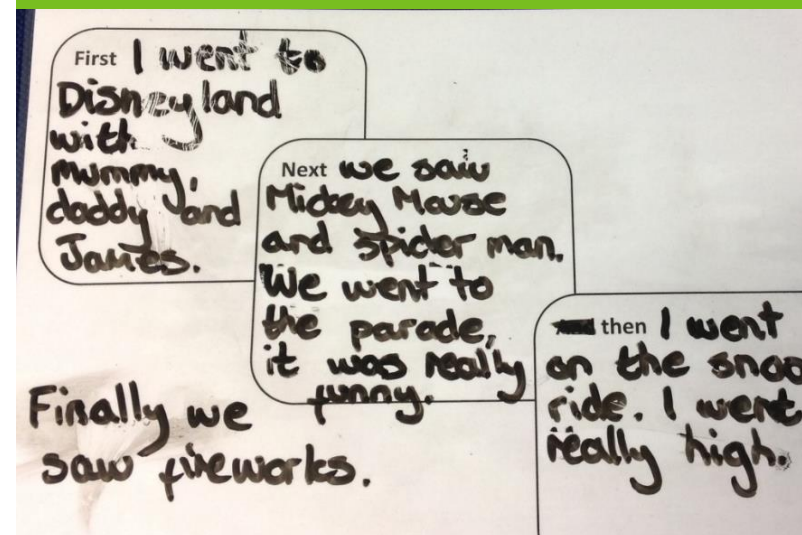 First I went to
Disneyland
with
mummy,
daddy and
James.
Next we saw
Mickey Mouse
and spider man.
We went to
the parade,
it was really
funny.
then I went
on the
ride. I went
really high.
Finally we
saw fireworks.